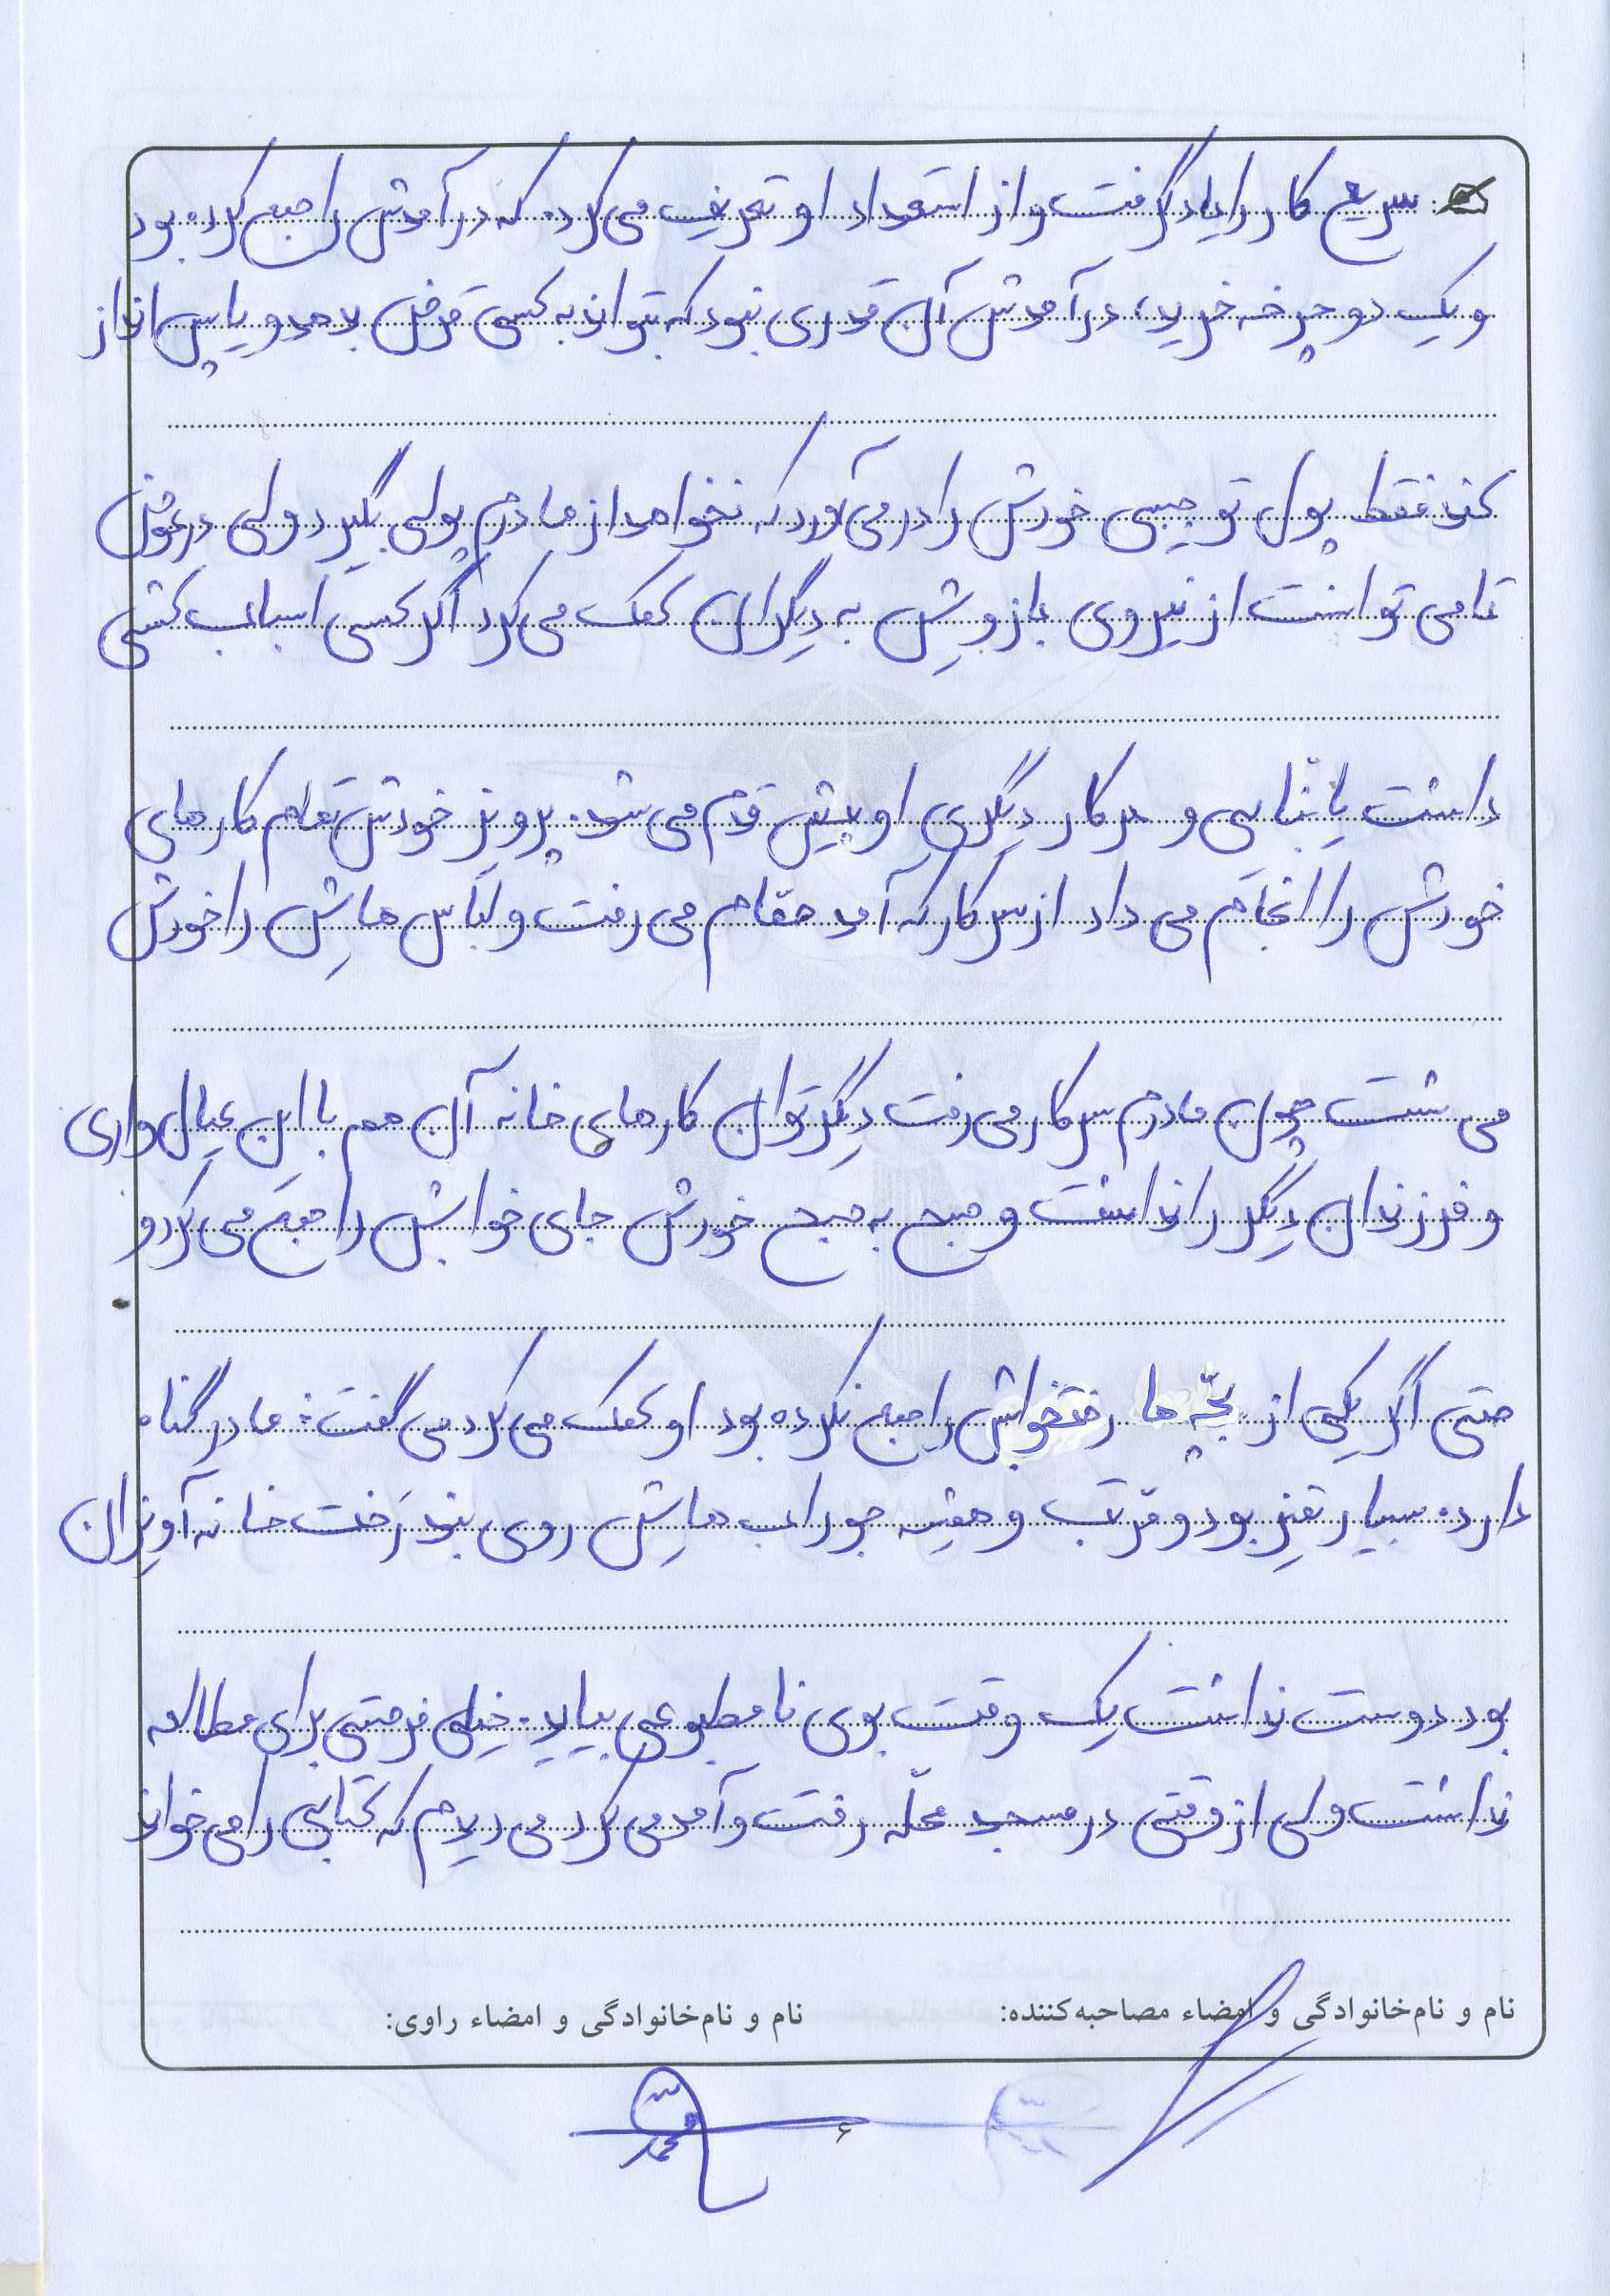 سریع کار را یاد گرفت و از استعداد او تعریف می‌کرد. که درآمدش را جمع کرده بود
و یک دوچرخه خرید، درآمدش آن قدری نبود که بتواند به کسی قرض بدهد و یا پس انداز
کند فقط پول تو جیبی خودش را در می‌آورد که نخواهد از مادرم پولی بگیرد ولی در عوض
تا می توانست از نیروی بازویش به دیگران کمک می‌کرد اگر کسی اسباب کشی
داشت یا بنّایی و هر کار دیگری او پیش قدم می شد. پرویز خودش تمام کارهای
خودش را انجام می داد از سر کار که آمد حمّام می رفت و لباس هایش را خودش
می شست چون مادرم سر کار می رفت دیگر توان کارهای خانه آن هم با این عیال واری
و فرزندان دیگر را نداشت و صبح به صبح خودش جای خوابش را جمع می کرد و
حتی اگر یکی از بچّه ها رختخوابش را جمع نکرده بود او کمک می کرد می گفت: مادر گناه
دارد. بسیار تمیز بود و مرتّب و همیشه جوراب هایش روی بند رَخت خانه آویزان
بود دوست نداشت یک وقت بوی نامطبوعی بیاید. خیلی فرصتی برای مطالعه
نداشت ولی از وقتی در مسجد محلّه رفت و آمد می کرد می دیدم که کتابی را می خواند
نام و نام‌خانوادگی و امضاء مصاحبه‌کننده: نام و نام‌خانوادگی و امضاء راوی:
۶